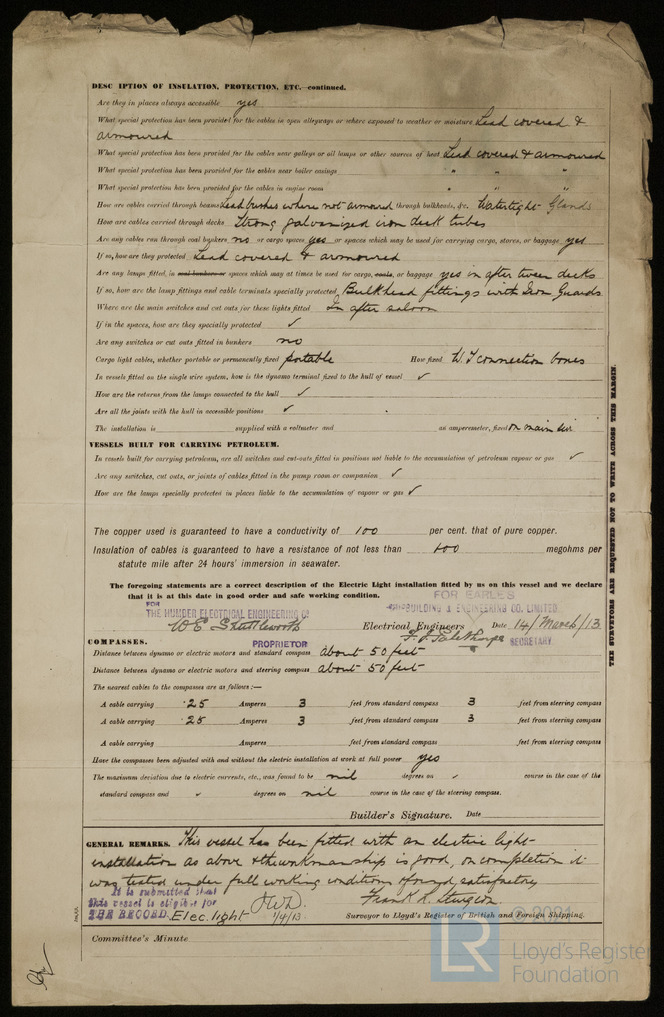 DESC IPTION OF INSULATION, PROTECTION, ETC.—continued.
Are they in places always accessible yes
What special protection has been provided for the cables in open alleyways or where exposed to weather or moisture Lead covered &
armoured
What special protection has been provided for the cables near galleys or oil lamps or other sources of heat Lead covered & armoured
What special protection has been provided for the cables near boiler casings " " "
What special protection has been provided for the cables in engine room " " "
How are cables carried through beams Lead bushes where not armoured through bulkheads, &c. Watertight Glands
How are cables carried through decks Strong galvanized iron deck tubes
Are any cables run through coal bunkers no or cargo spaces yes or spaces which may be used for carrying cargo, stores, or baggage yes
If so, how are they protected Lead covered & armoured
Are any lamps fitted in coal bunkers or spaces which may at times be used for cargo, coals, or baggage yes in after tween decks
If so, how are the lamp fittings and cable terminals specially protected Bulkhead fittings with Iron Guards
Where are the main switches and cut outs for these lights fitted In after saloon
If in the spaces, how are they specially protected ✓
Are any switches or cut outs fitted in bunkers no
Cargo light cables, whether portable or permanently fixed portable How fixed W T connection boxes
In vessels fitted on the single wire system, how is the dynamo terminal fixed to the hull of vessel ✓
How are the returns from the lamps connected to the hull ✓
Are all the joints with the hull in accessible positions ✓
The installation is supplied with a voltmeter and an amperemeter, fixed on main
VESSELS BUILT FOR CARRYING PETROLEUM.
In vessels built for carrying petroleum, are all switches and cut-outs fitted in positions not liable to the accumulation of petroleum vapour or gas ✓
Are any switches, cut outs, or joints of cables fitted in the pump room or companion ✓
How are the lamps specially protected in places liable to the accumulation of vapour or gas ✓
The copper used is guaranteed to have a conductivity of 100 per cent. that of pure copper.
Insulation of cables is guaranteed to have a resistance of not less than 600 megohms per
statute mile after 24 hours' immersion in seawater.
The foregoing statements are a correct description of the Electric Light installation fitted by us on this vessel and we declare
that it is at this date in good order and safe working condition.
FOR EARLE'S
FOR
THE HUMBER ELECTRICAL ENGINEERING Co
SHIPBUILDING & ENGINEERING CO. LIMITED
W E Shuttleworth Electrical Engineers Date 14/March/13
PROPRIETOR
SECRETARY.
COMPASSES.
Distance between dynamo or electric motors and standard compass about 50 feet
Distance between dynamo or electric motors and steering compass about 50 feet
The nearest cables to the compasses are as follows:—
A cable carrying .25 Amperes 3 feet from standard compass 3 feet from steering compass
A cable carrying .25 Amperes 3 feet from standard compass 3 feet from steering compass
A cable carrying Amperes feet from standard compass feet from steering compass
Have the compasses been adjusted with and without the electric installation at work at full power yes
The maximum deviation due to electric currents, etc., was found to be nil degrees on ✓ course in the case of the
standard compass and ✓ degrees on nil course in the case of the steering compass.
Builder's Signature. Date
GENERAL REMARKS. This vessel has been fitted with an electric light
installation as above & the workmanship is good, on completion it
was tested under full working conditions & found satisfactory
It is submitted that
this vessel is eligible for
THE RECORD. Elec. light JWD. 1/4/13
Frank R. Sturgeon
Surveyor to Lloyd's Register of British and Foreign Shipping.
Committee's Minute
THE SURVEYORS ARE REQUESTED NOT TO WRITE ACROSS THIS MARGIN.
© 2021
LR
Lloyd's Register
Foundation